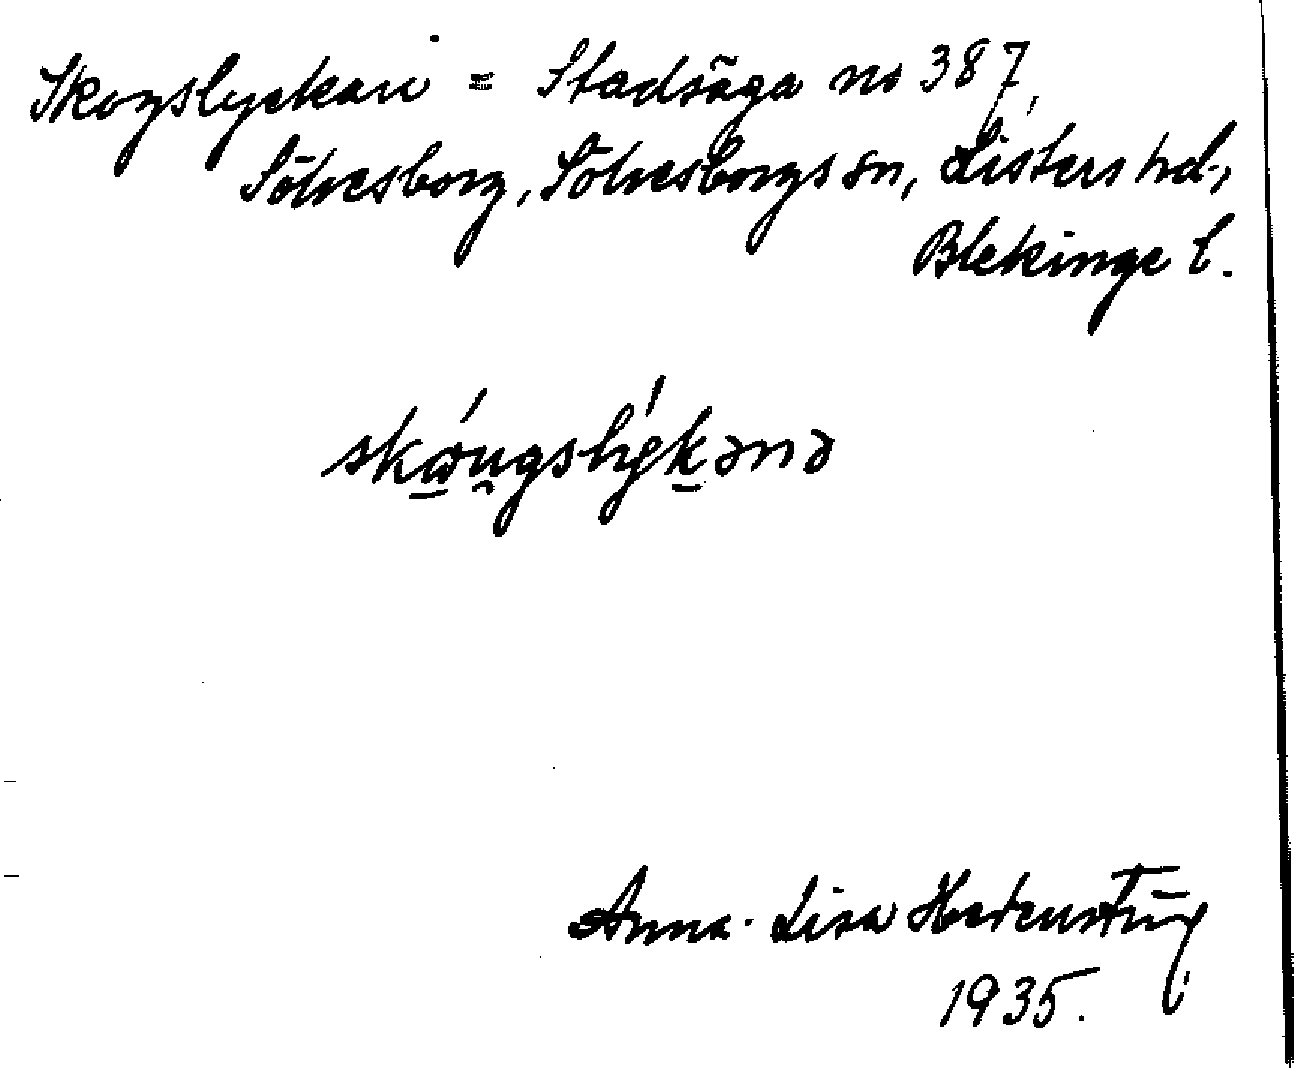 Skogslyckan = Stadsäga no 387,
Sölvesborg, Sölvesborgs sn, Listers hd.,
Blekinge l.
skώ̱u̯gslýḵənə
Anna-Lisa
1935.